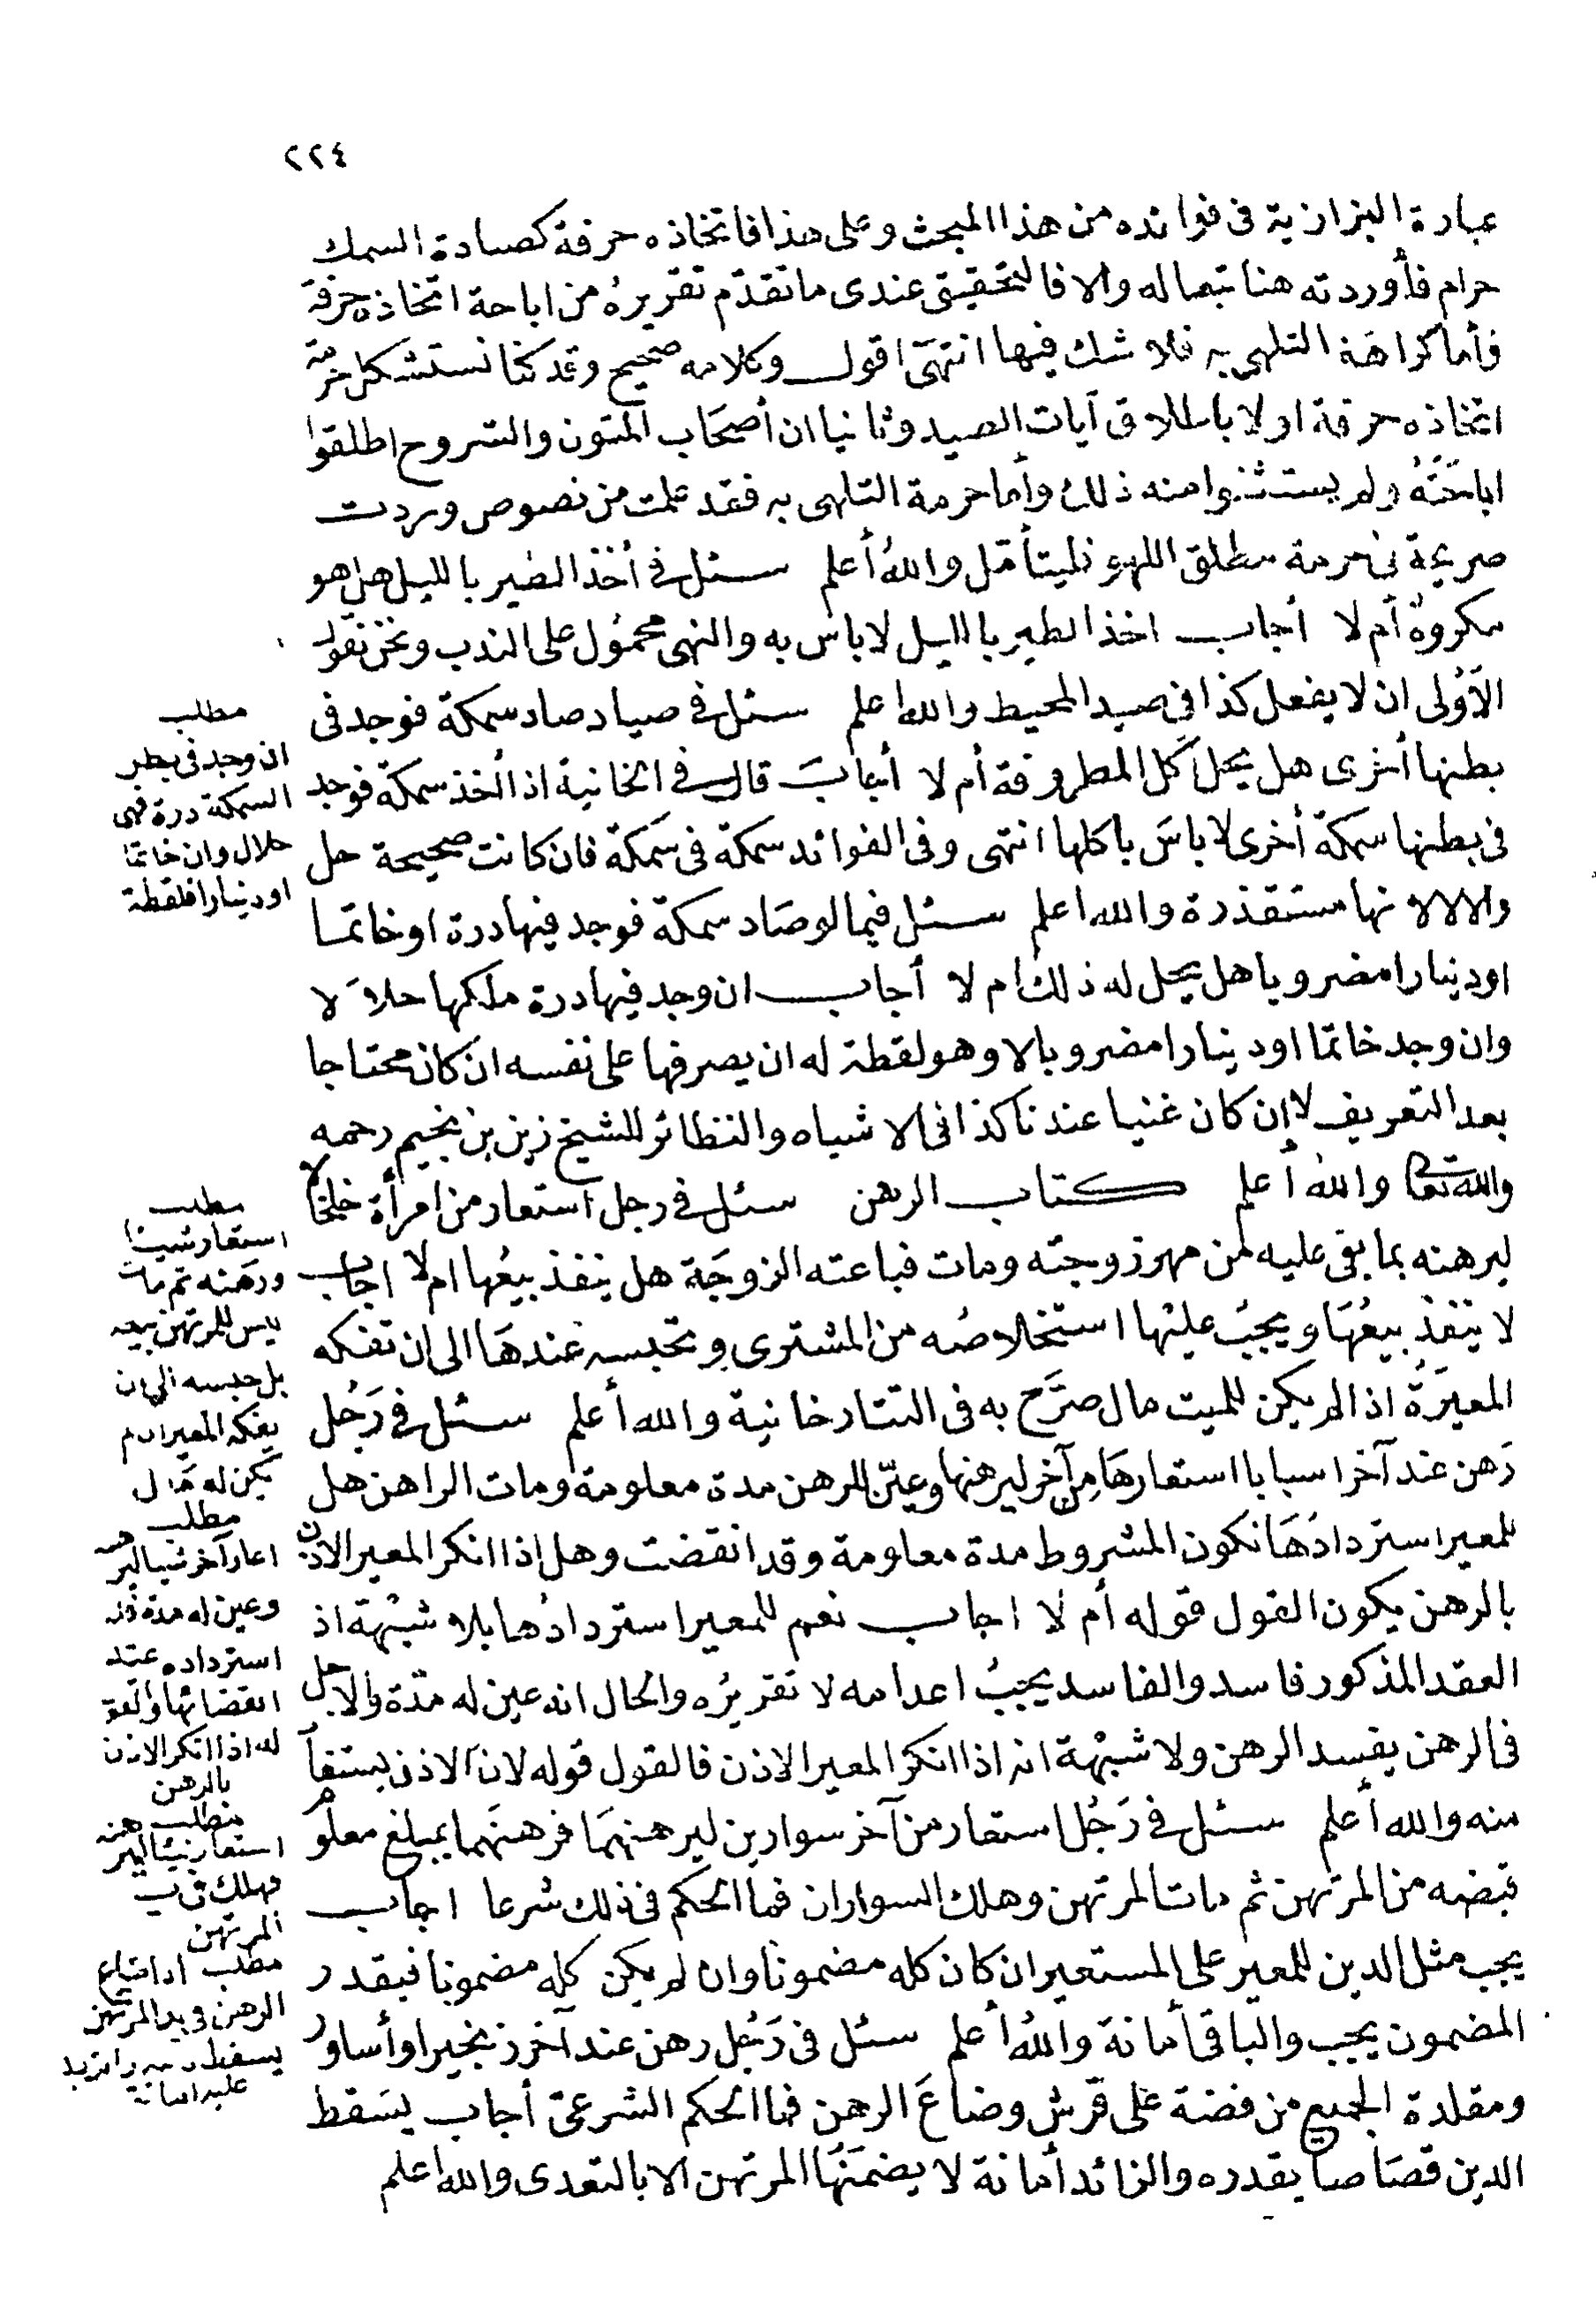 ٢٢٤
عبارة البزازية فى فوائده من هذا المبحث وعلى هذا فاتخاذه حرفة كصيادة السمك
حرام فأوردته هنا تبعا له والا فالتحقيق عندى ما تقدّم تقريرهُ من اباحة اتخاذه حرفة
فأما كراهَة التلهى به فلا شك فيها انتهىَ اقول وكلامه صحيح وقد كنا نستشكل حرمة
اتخاذه حرفة اولا باطلاق آيات الصيد وثانيا ان أصحَاب المتون والشروح اطلقوا
اباحتَهُ ولم يستثنوا منه ذلك وأما حرمة التلهى به فقد علمت من نصوص وردت
صريحة فى حرمة مطلق اللهو فليتأمّل واللهُ أعلم سئل فى أخذ الطير بالليل هل هو
مكروهٌ أم لا أجاب اخذ الطير بالليل لا باس به والنهى محمُول على الندب ونحن نقول
الاَوْلى ان لا يفعل كذا فى صيد المحيط والله اعلم سئل فى صياد صاد سمكة فوجد فى
بطنها أخرى هل يحل كَل المظروفة أم لا أجابَ قال فى الخانية اذا أخذ سمكة فوجد
فى بطنها سمكة أخرى لا باسَ باكلها انتهى وفى الفوائد سمكة فى سَمكة فان كانت صحيحة حل
والا لا لانها مستقذرة والله اعلم سئل فيما لو صَاد سمكة فوجد فيها درة او خاتما
او دينارا مضروبا هل يحل له ذلك ام لا أجاب ان وجد فيها درة ملكها حلاَلا
وان وجد خاتما او دينارا مضروبا لا وهو لقطة له ان يصرفها على نفسه ان كان محتاجا
بعد التعريف لا إن كان غنيا عندنا كذا فى الاشباه والنظائر للشيخ زين بن نجيم رحمه
والله تعالى والله أعلم كتاب الرهن سئل فى رجل استعار من امرأة خلخالا
ليرهنه بما بقى عليه لمن مهر زوجته ومات فباعته الزوجَة هل ينفذ بيعُها ام لا اجاب
لا ينفذ بيعُهَا ويجبُ عليْها استخلاصُه من المشترى وتحبسه عندهَا الى ان تفكه
المعيرَةُ اذا لم يكن للميت مال صرَّح به فى التتارخانية والله أعلم سئل فى رَجُل
رَهن عند آخر اسبابا استعارهَا مِن آخر ليرهنها وعيّن للرهن مدة معلومة ومات الراهن هل
للمعير استردادُهَا لكون المشروط مدة معلومة وقد انقضت وهل اذا انكر المعير الاذن
بالرهن يكون القول قوله أم لا اجاب نعم للمعير استردادُها بلا شبْهة اذ
العقد المذكور فاسد والفاسد يجبُ اعدامه لا تقريرُه والحال انه عين له مدّة والاجل
فى الرهن يفسد الرهن ولا شبْهة انه اذا انكر المعير الاذن فالقول قوله لان الاذن يستفاد
منه والله أعلم سئل فى رَجُل استعار من آخر سوارين ليرهنهمَا فرهنَهما بمبلغ معلوم
قبضه من المرتهن ثم مات المرتهن وهلك السواران فما الحكم فى ذلك شرعا اجاب
يجب مثل الدين للمعير على المستعير ان كان كله مضمونًا وان لم يكن كله مضمونا فبقدر
المضمون يجب والباقى أمانة واللهُ أعلم سئل فى رَجُل رهن عند آخر زنجيرا وأساور
ومقلدة الجميع من فضة على قرش وضاعَ الرهن فما الحكم الشرعىّ أجاب يسَقط
الدين قصَاصا بقدره والزائد أمانة لا يضمَنُهَا المرتهن الا بالتعدى والله اعلم
مطلب
ان وجد فى بطن
السمكة درة فهى
حلال وان خاتما
او دينارا فلقطة
مطلب
استعار شيئا
ورهَنه ثم مات
ليس للمرتهن بيعه
بل حبسه الى ان
يفكه المعير ان لم
يكن له مَال
مطلب
اعار آخر شيا ليرهنه
وعين له مدة فله
استرداده عند
انقضائها والقول
له اذا انكر الاذن
بالرهن
مطلب
استعار شيئا ليرهنه
فهلك فى يد
المرتهن
مطلب اذا ضاع
الرهن فى يد المرتهن
يسقط قدره والزيد
عليه امانة